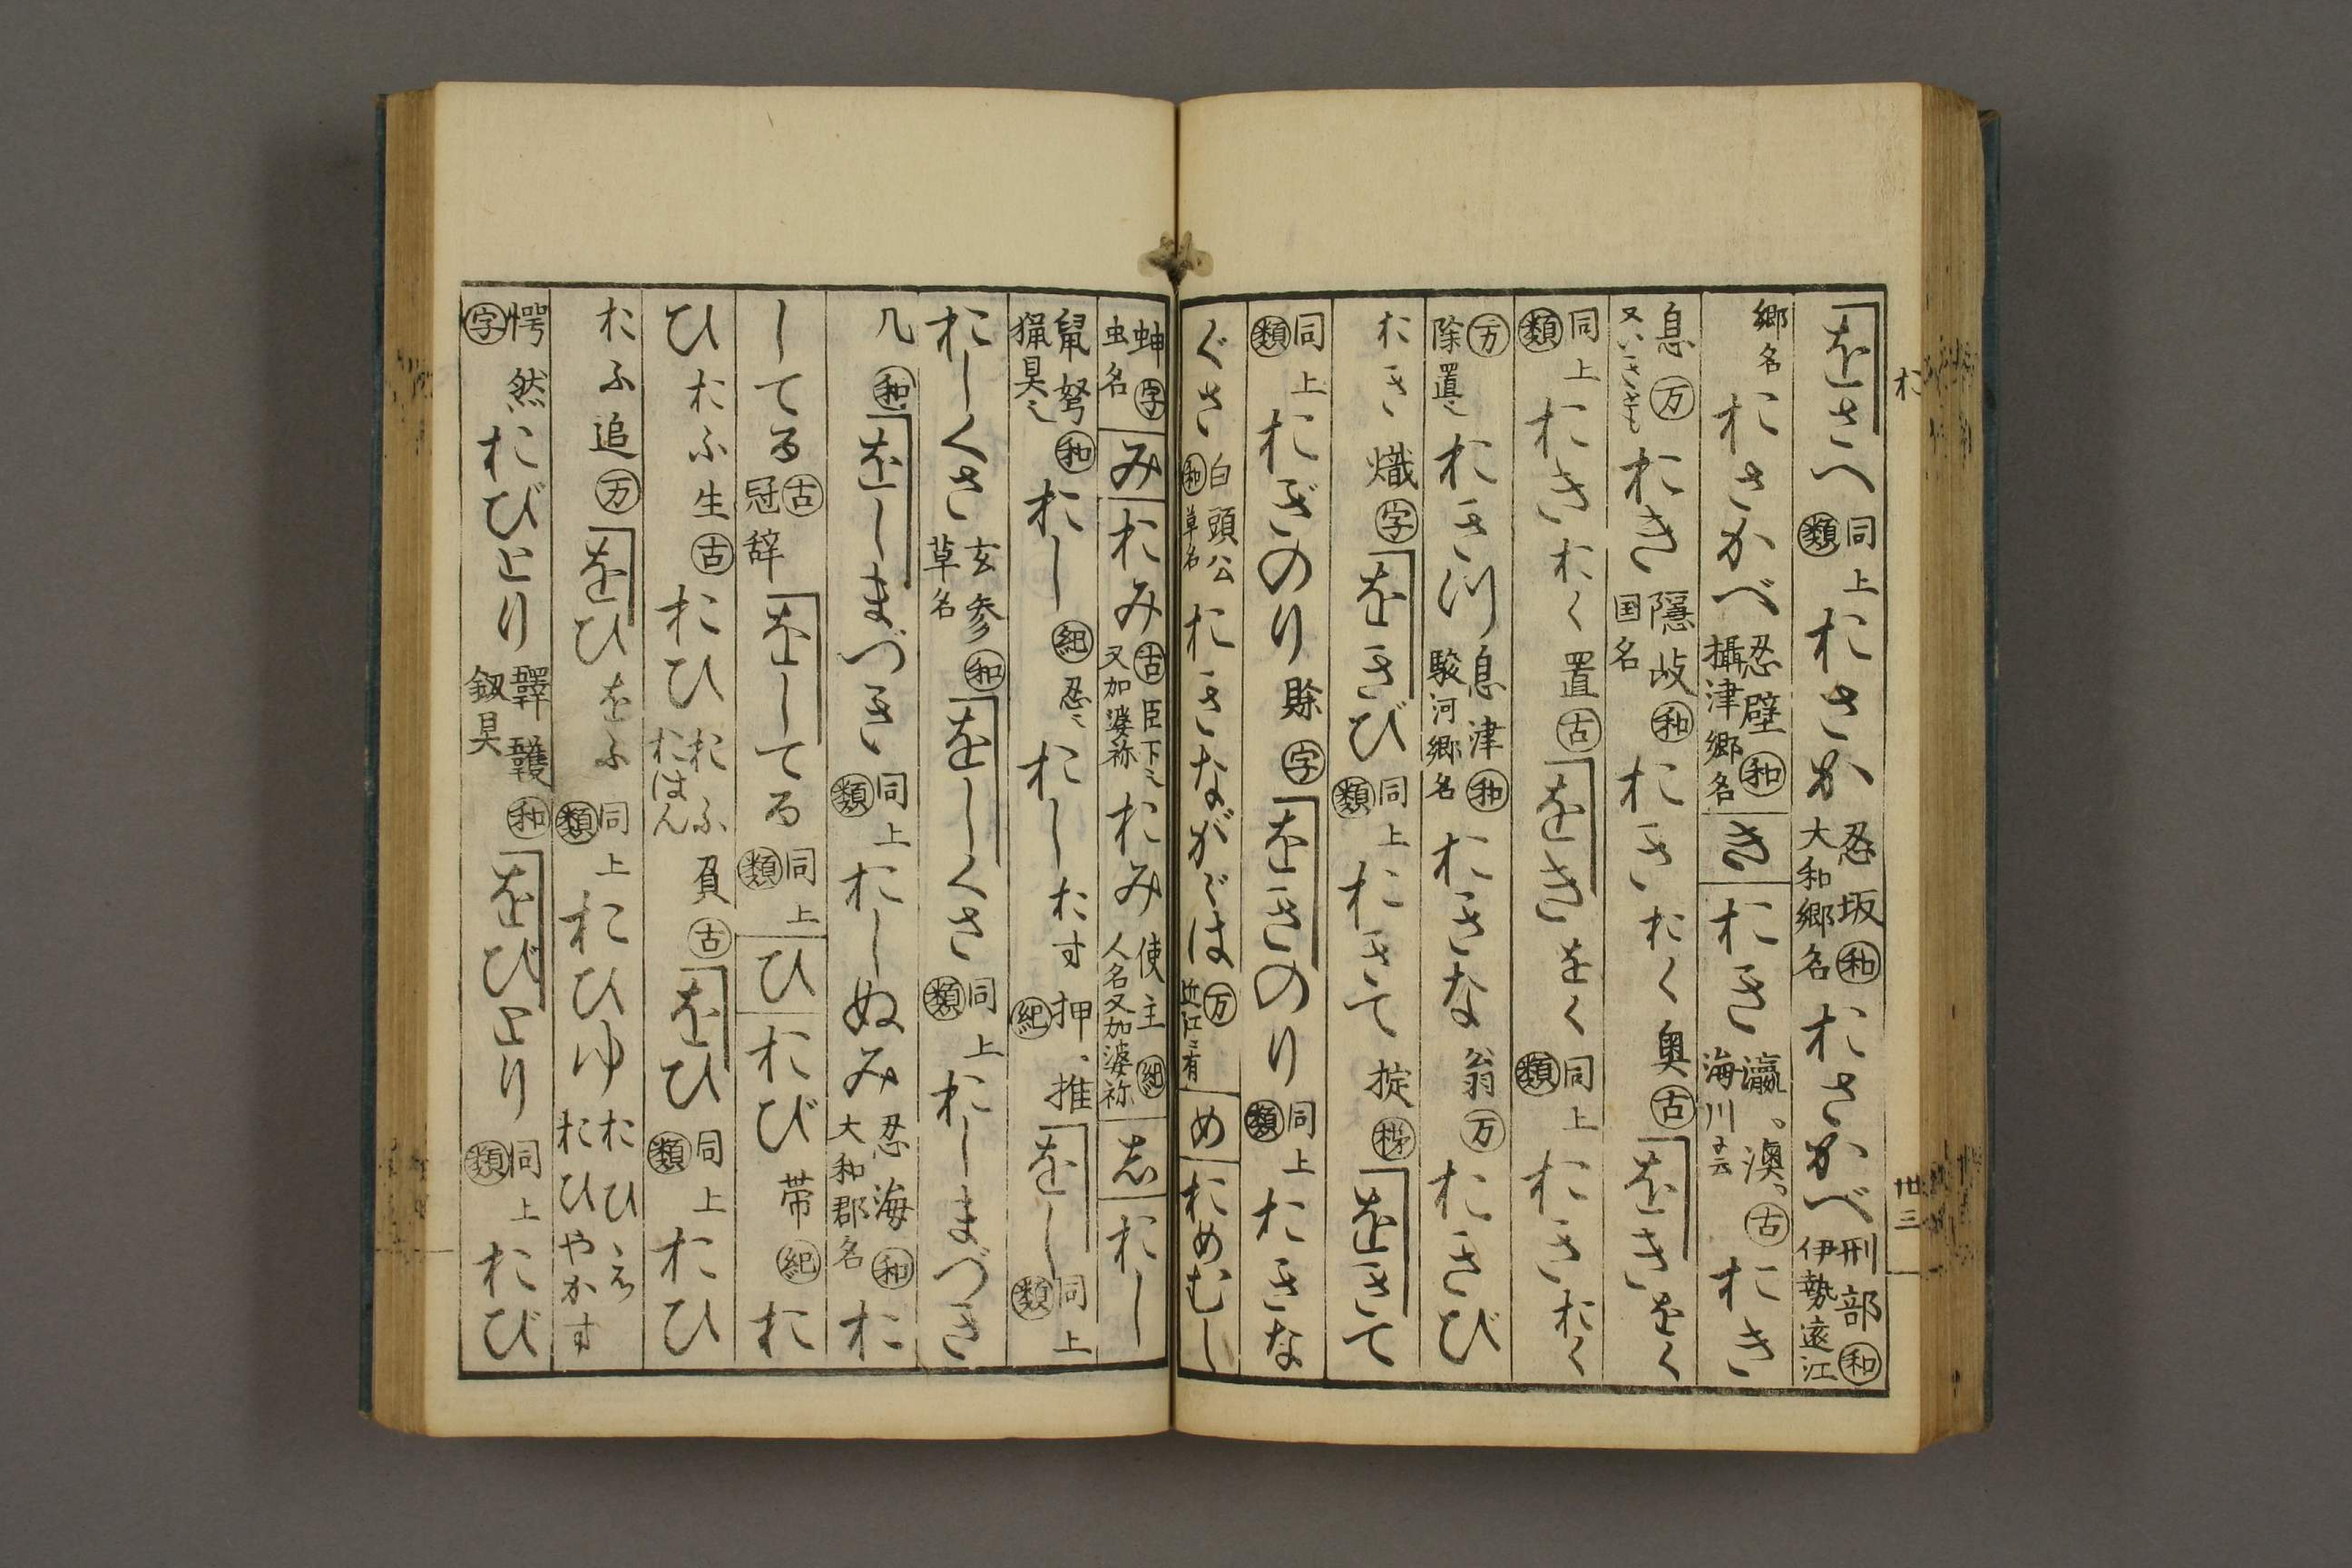 お
卅三
をさへ 同上 類 おさか 忍坂 和 大和郷名 おさかべ 刑部 和 伊勢遠江
郷名 おさかべ 忍壁 和 攝津郷名 き おき 瀛、澳、古 海川ニ云 おき
息 万 又いきとも おき 隠岐 和 国名 おき おく 奥 古 をき をく
同上 類 おき おく 置 古 をき をく 同上 類 おき おく
万 除置ニ おき川 息津 和 駿河郷名 おきな 翁 万 おきび
おき 熾 字 をきび 同上 類 おきて 掟 をきて
同上 類 おぎのり 賖 字 をきのり 同上 類 おきな
ぐさ 白頭公 和 草名 おきながゞは 万 近江ニ有 め おめむし
蚰 字 虫名 み おみ 古 臣下ニ 又加婆祢 おみ 使主 紀 人名又加婆祢 し おし
鼠弩 和 猟具ニ おし 紀 忍ニ おし おす 押、推 紀 をし 同上 類
おしくさ 玄参 和 草名 をしくさ 同上 類 おしまづき
几 和 をしまづき 同上 類 おしぬみ 忍海 和 大和郡名 お
してる 古 冠辞 をしてる 同上 類 ひ おび 帯 紀 お
ひ おふ 生 古 おひ おふ おはん 負 古 をひ 同上 類 おひ
おふ 追 万 をひ をふ 同上 類 おひゆ おひ おひやかす
愕然 字 おびとり 和 釼具 をびとり 同上 類 おび